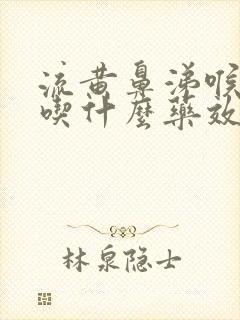 流黄鼻涕喉
喫什麼藥效
林泉隐士